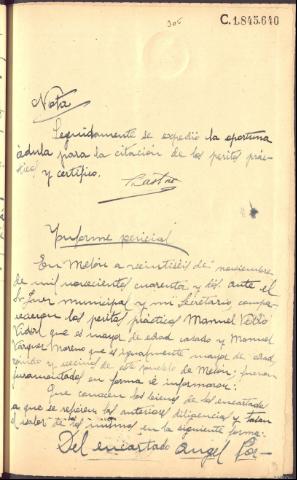 305
C.1.845.640
Nota
Seguidamente se expedió la oportuna
cédula para la citación de los peritos prác-
ticos y certifico.
Castro
Informe pericial
En Melón a veintiséis de noviembre
de mil novecientos cuarenta y dos ante el
Sr Juez municipal y mi Secretario compa-
recieron los peritos prácticos Manuel
Vidal que es mayor de edad casado y Manuel
Vázquez Moreno que es igualmente mayor de edad
y vecinos de este pueblo de Melón: fueron
juramentados en forma é informaron:
Que conocen los bienes de los encartados
a que se refieren las anteriores diligencias y tasan
el valor de los mismos en la siguiente forma:
Del encartado Angel